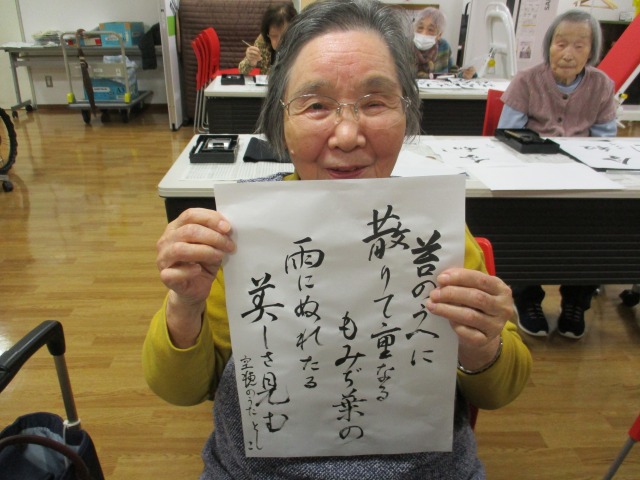 苔のうへに
散りて重なる
もみぢ葉の
雨にぬれたる
美しさ見む
空穂のうた としこ